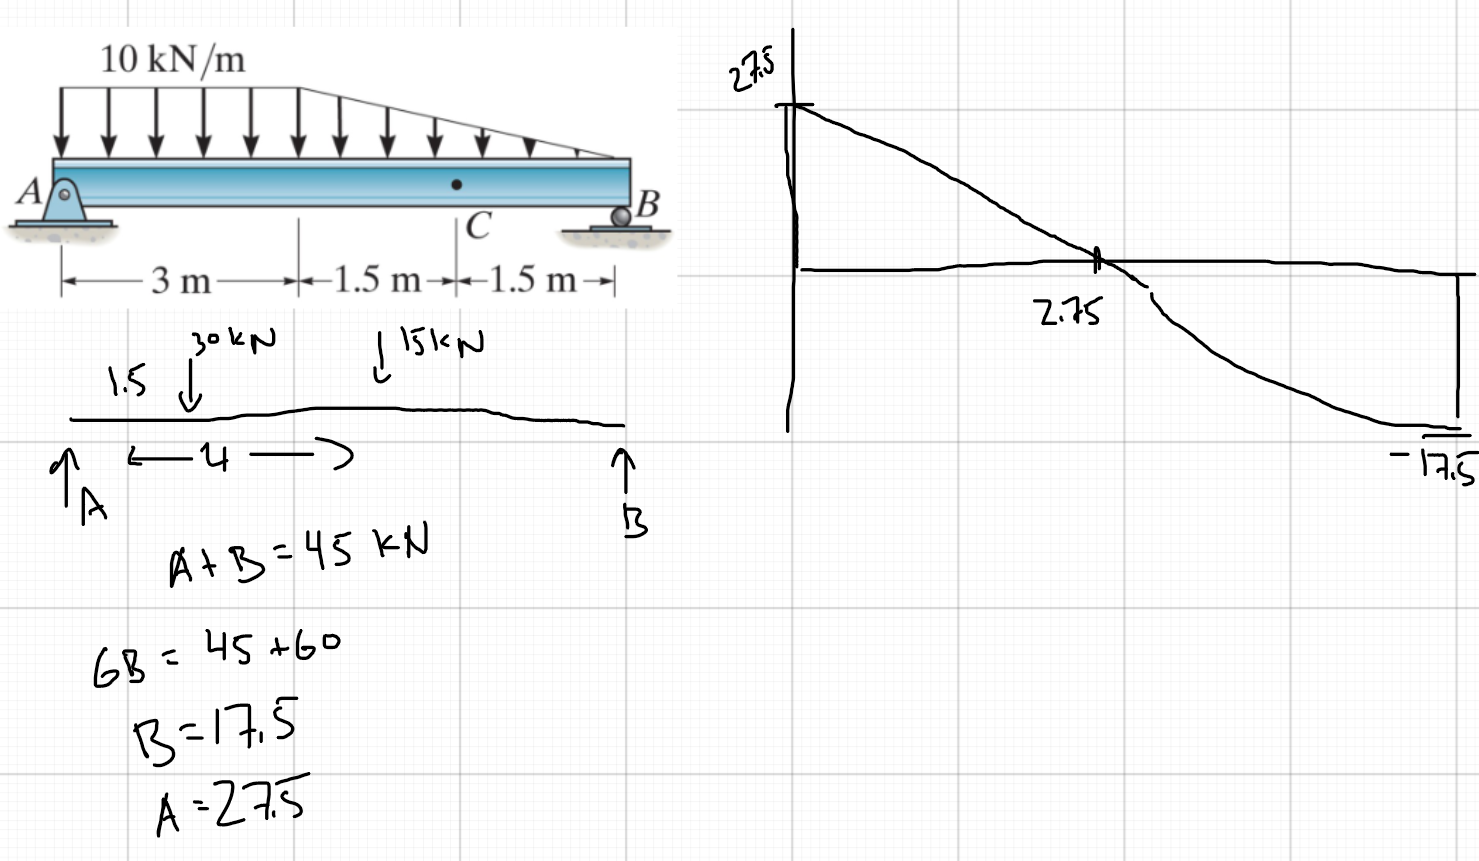 10 kN/m
A
B
C
3 m
1.5 m
1.5 m
1.5
30 kN
15 kN
4
A
B
A + B = 45 kN
6B = 45 + 60
B = 17.5
A = 27.5
27.5
2.75
-17.5